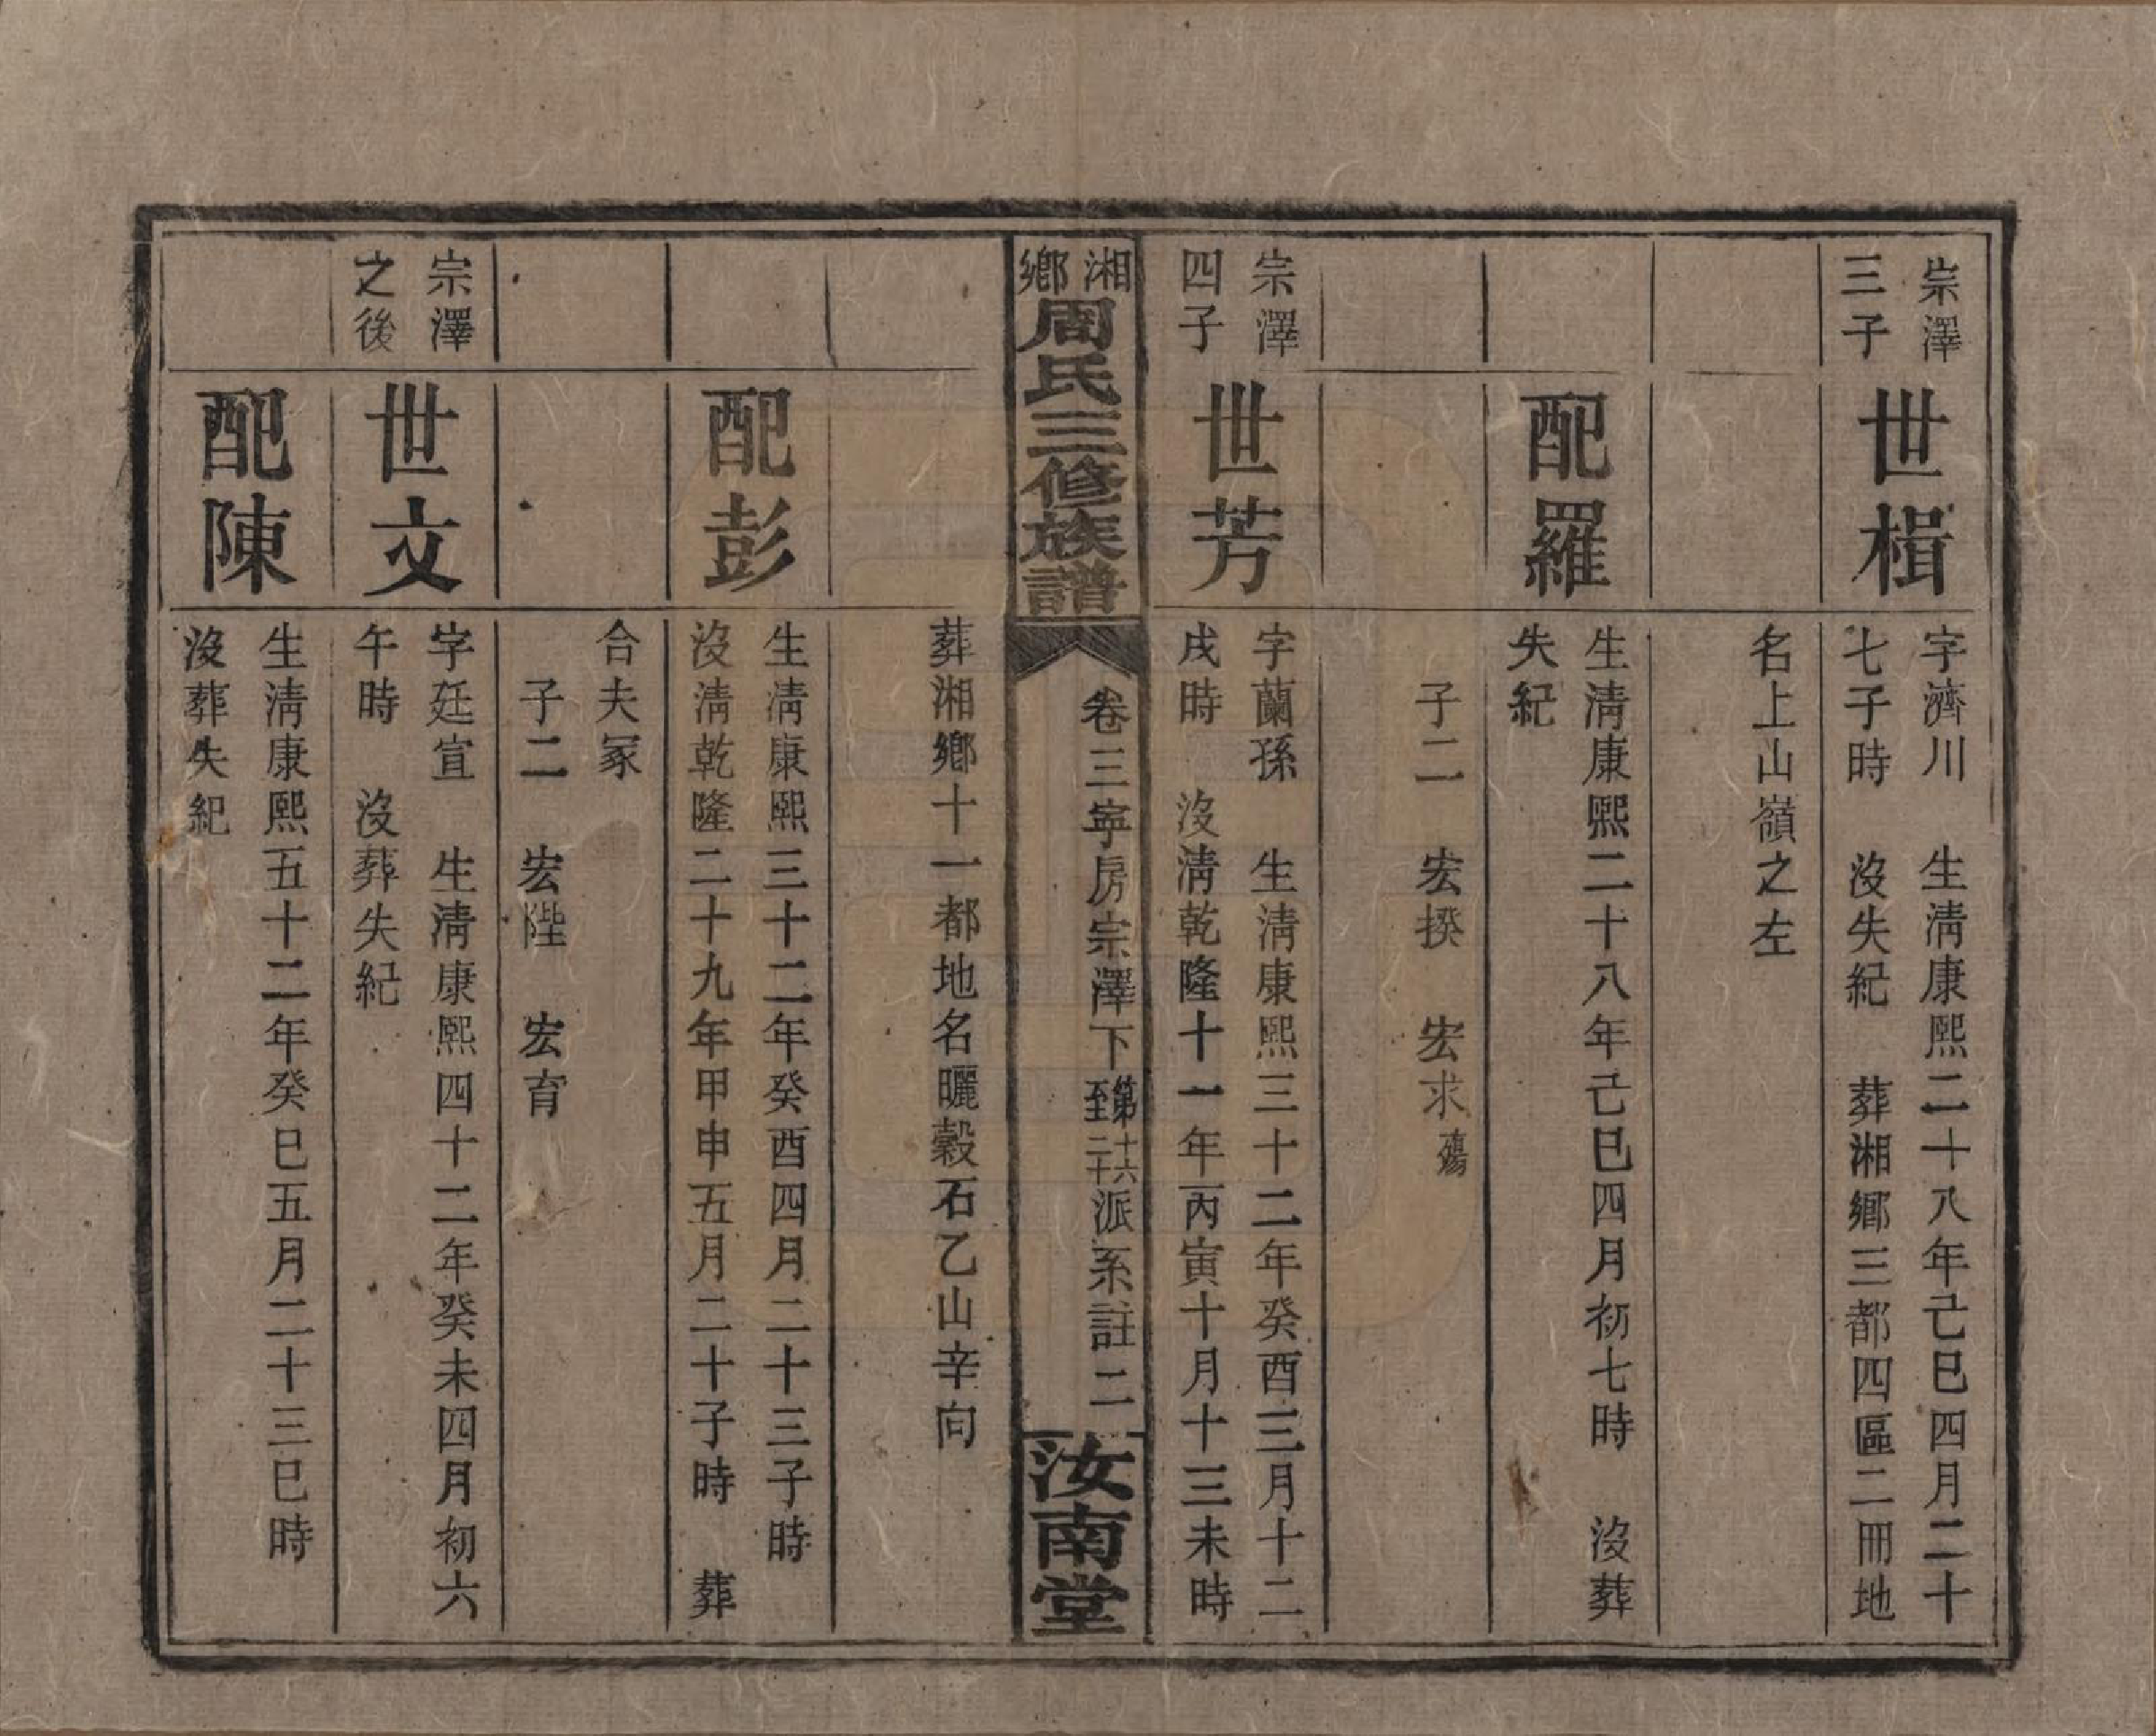 宗澤
三子
世楫
字濟川　生淸康熙二十八年己巳四月二十
七子時　沒失紀　葬湘鄉三都四區二冊地
名上山嶺之左
配羅
生淸康熙二十八年己巳四月初七時　沒葬
失紀
子二　宏揆　宏求殤
宗澤
四子
世芳
字蘭孫　生淸康熙三十二年癸酉三月十二
戌時　沒淸乾隆十一年丙寅十月十三未時
湘鄉周氏三修族譜
卷三寧房宗澤下第十六至二十派系註二
汝南堂
葬湘鄉十一都地名曬穀石乙山辛向
配彭
生淸康熙三十二年癸酉四月二十三子時
沒淸乾隆二十九年甲申五月二十子時　葬
合夫冢
子二　宏陛　宏育
宗澤
之後
世文
字廷宣　生淸康熙四十二年癸未四月初六
午時　沒葬失紀
配陳
生淸康熙五十二年癸巳五月二十三巳時
沒葬失紀